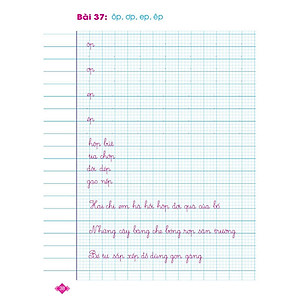 Bài 37: ôp, ơp, ep, êp
ôp
ơp
ep
êp
hộp bút
tia chớp
đôi dép
gạo nếp
Hai chị em hồ hởi đợi quà của bố
Những cây bàng che bóng rợp sân trường
Bé Su sắp xếp đồ dùng gọn gàng